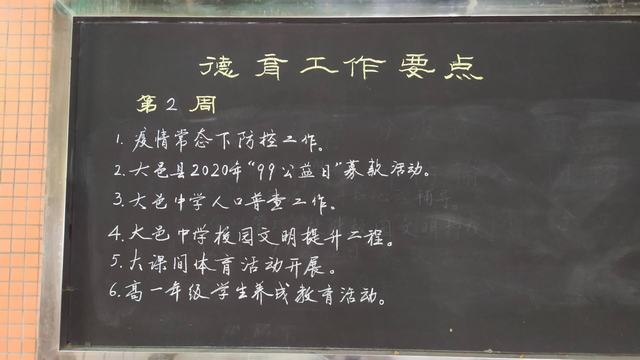 德育工作要点
第2周
1.疫情常态下防控工作。
2.大邑县2020年“99公益日”募款活动。
3.大邑中学人口普查工作。
4.大邑中学校园文明提升工程。
5.大课间体育活动开展。
6.高一年级学生养成教育活动。